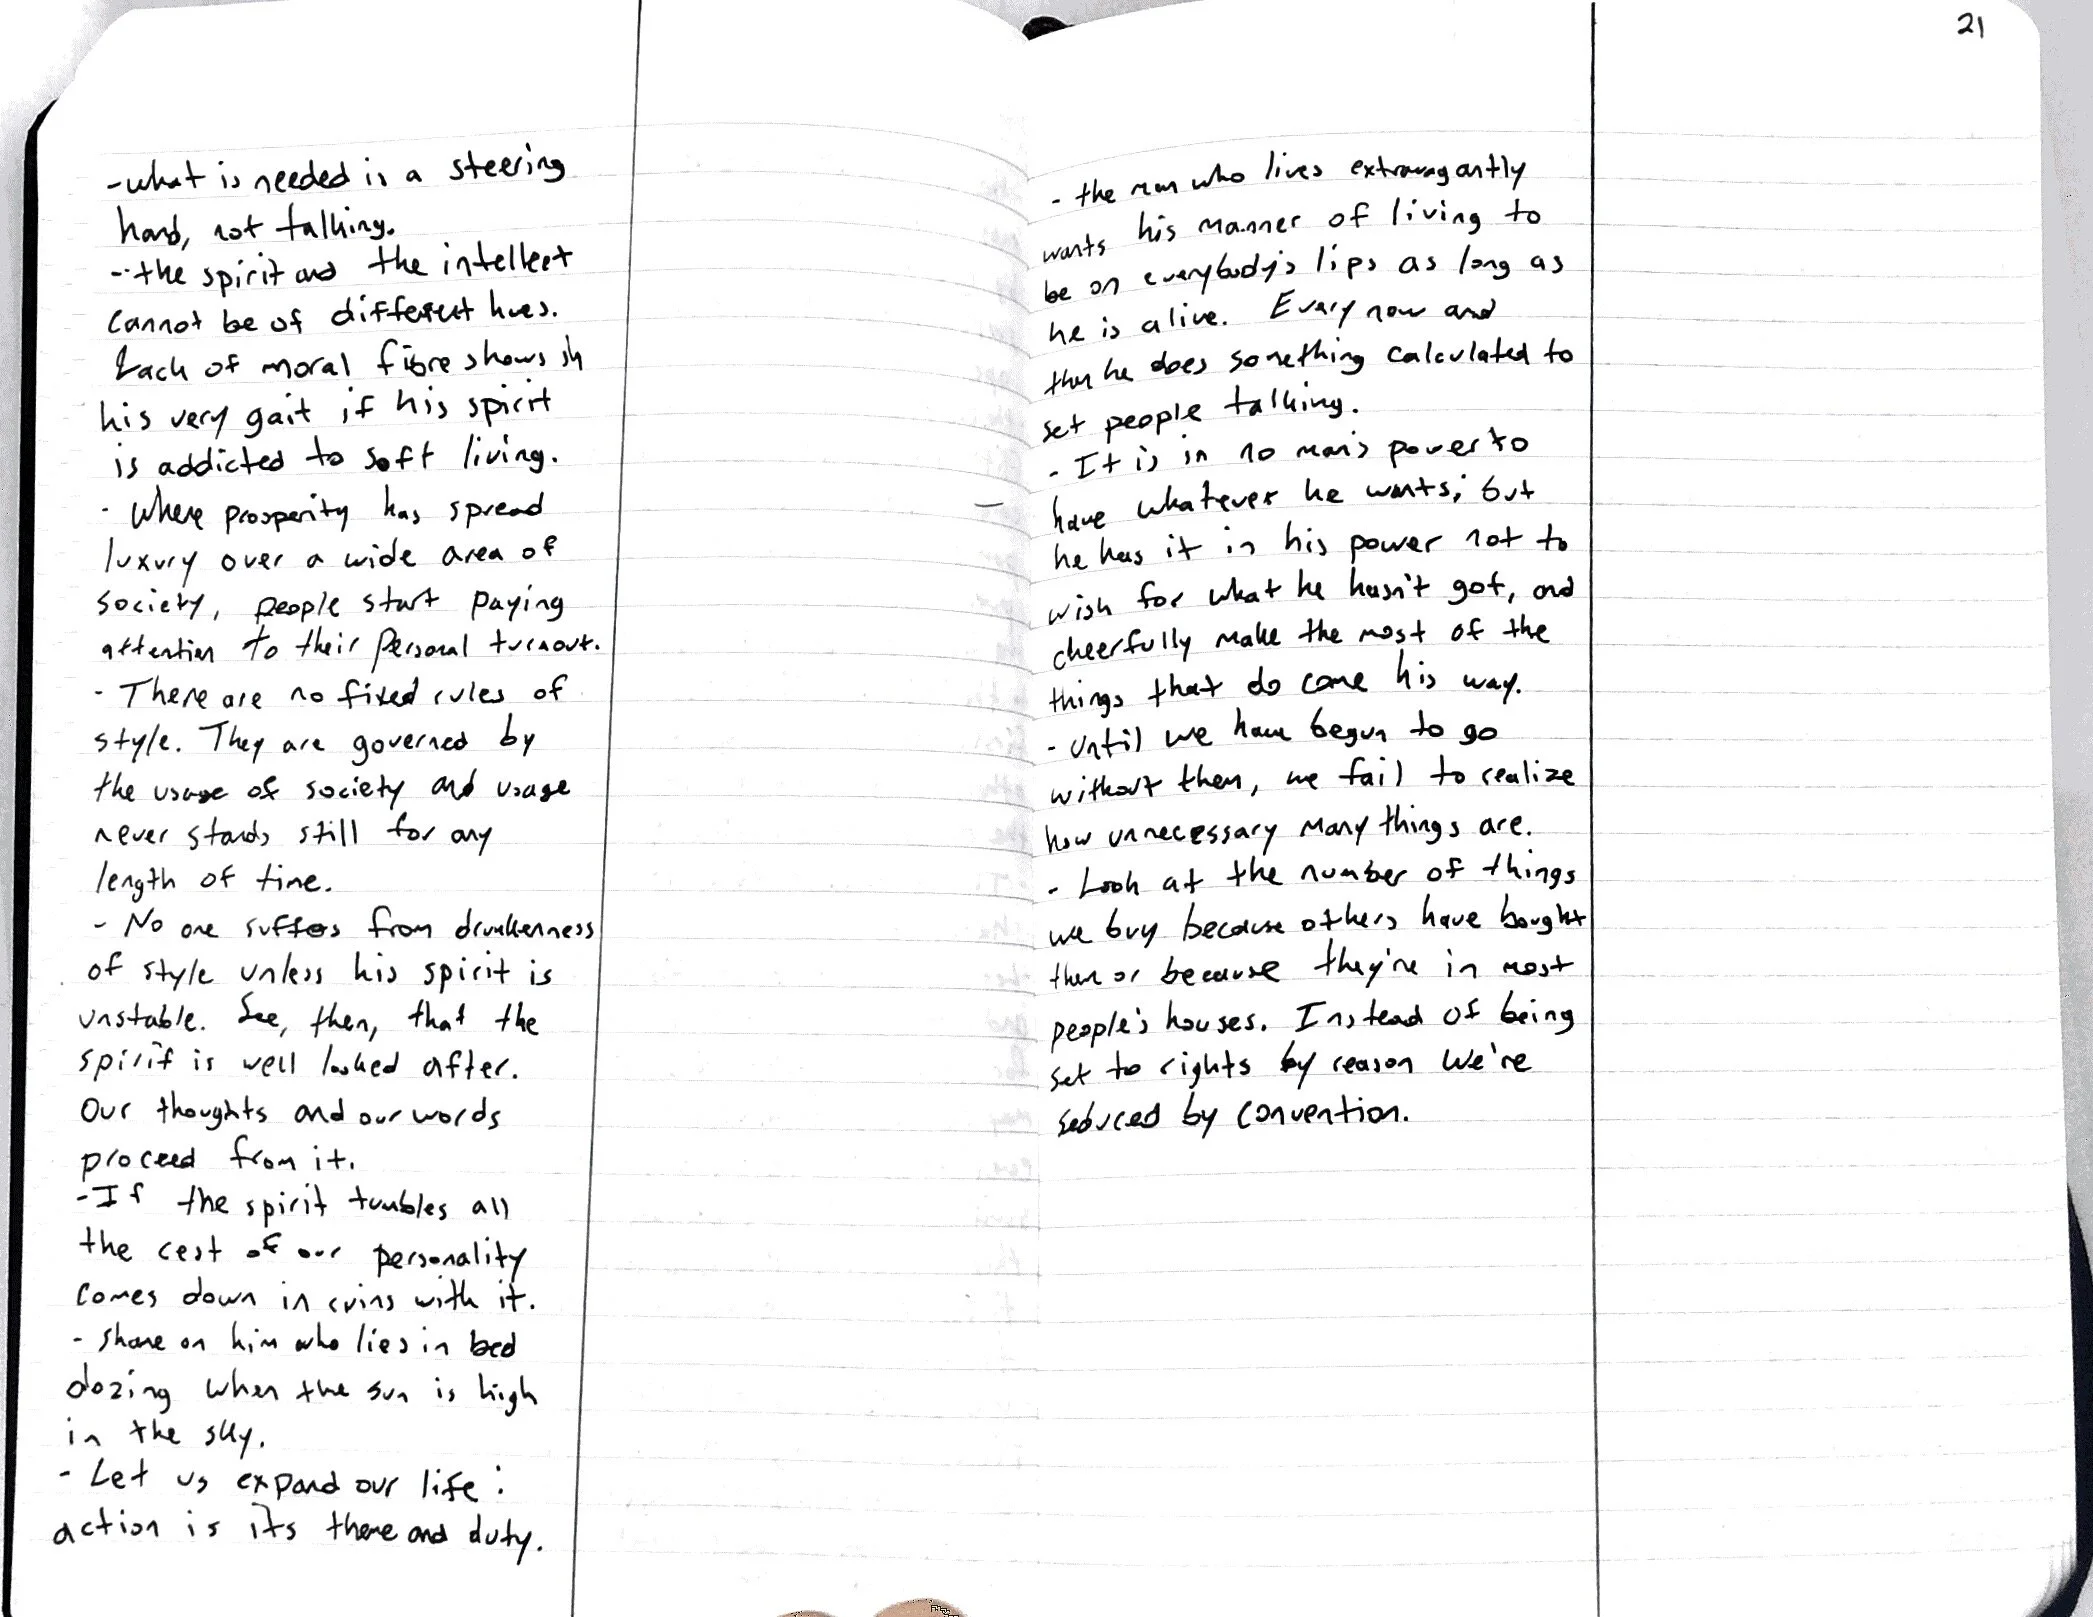 - what is needed is a steering
hand, not talking.
- the spirit and the intellect
cannot be of different hues.
Lack of moral fibre shows in
his very gait if his spirit
is addicted to soft living.
- Where prosperity has spread
luxury over a wide area of
society, people start paying
attention to their personal turnout.
- There are no fixed rules of
style. They are governed by
the usage of society and usage
never stands still for any
length of time.
- No one suffers from drunkenness
of style unless his spirit is
unstable. See, then, that the
spirit is well looked after.
Our thoughts and our words
proceed from it.
- If the spirit tumbles all
the rest of our personality
comes down in ruins with it.
- Shame on him who lies in bed
dozing when the sun is high
in the sky.
- Let us expand our life:
action is its theme and duty.
21
- the man who lives extravagantly
wants his manner of living to
be on everybody's lips as long as
he is alive. Every now and
then he does something calculated to
set people talking.
- It is in no man's power to
have whatever he wants; but
he has it in his power not to
wish for what he hasn't got, and
cheerfully make the most of the
things that do come his way.
- Until we have begun to go
without them, we fail to realize
how unnecessary many things are.
- Look at the number of things
we buy because others have bought
them or because they're in most
people's houses. Instead of being
set to rights by reason we're
seduced by convention.